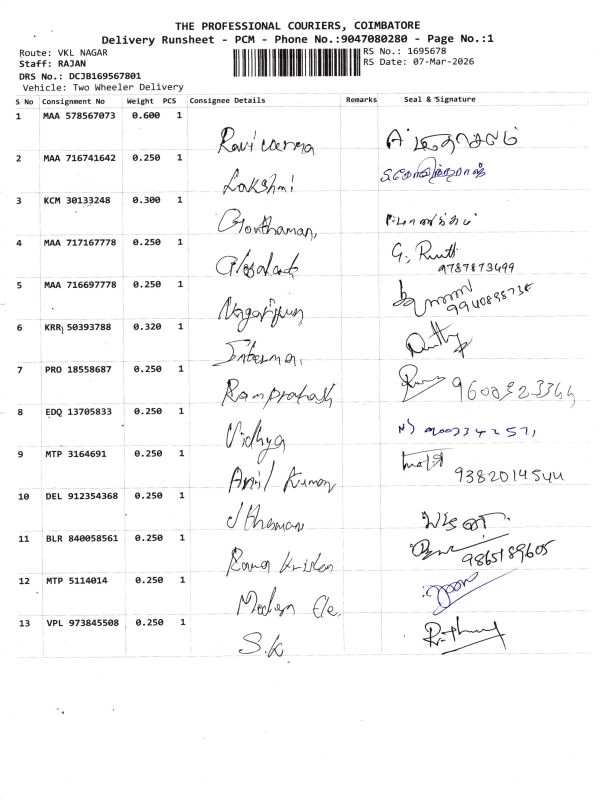 THE PROFESSIONAL COURIERS, COIMBATORE
Delivery Runsheet - PCM - Phone No.:9047080280 - Page No.:1
Route: VKL NAGAR
RS No.: 1695678
Staff: RAJAN
RS Date: 07-Mar-2026
DRS No.: DCJB169567801
Vehicle: Two Wheeler Delivery
S No Consignment No Weight PCS Consignee Details Remarks Seal & Signature
1 MAA 578567073 0.600 1
Ravi varma
2 MAA 716741642 0.250 1
Lakshmi
3 KCM 30133248 0.300 1
Gowthaman,
4 MAA 717167778 0.250 1
G. 9787873499
5 MAA 716697778 0.250 1
Nagarjun
6 KRR 50393788 0.320 1
7 PRO 18558687 0.250 1
Ramprakash
8 EDQ 13705833 0.250 1
Vidhya
9 MTP 3164691 0.250 1
Anil Kumar 9382014544
10 DEL 912354368 0.250 1
11 BLR 840058561 0.250 1
Rama Krishn 9865189605
12 MTP 5114014 0.250 1
Modern Ele.
13 VPL 973845508 0.250 1
S.K